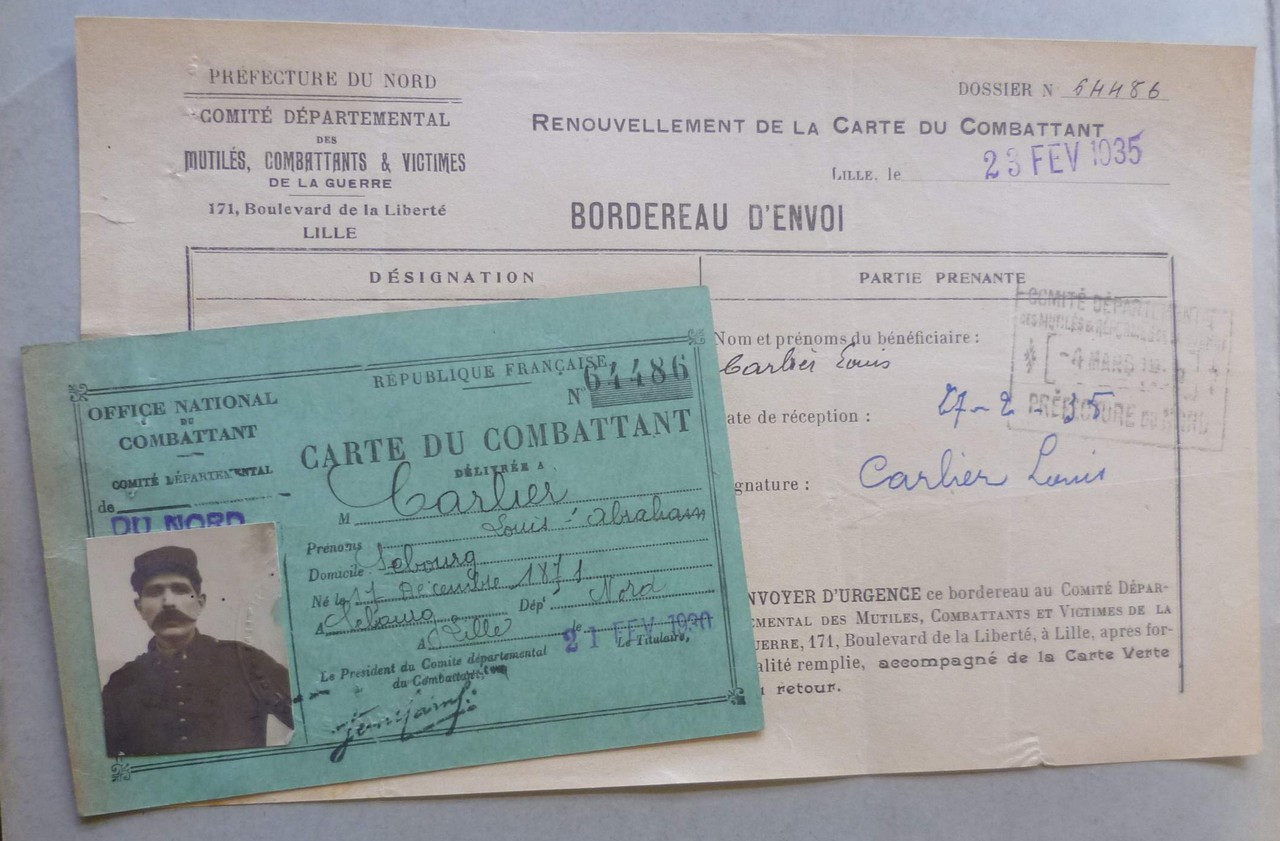 PRÉFECTURE DU NORD
COMITÉ DÉPARTEMENTAL
DES
MUTILÉS, COMBATTANTS & VICTIMES
DE LA GUERRE
171, Boulevard de la Liberté
LILLE
DOSSIER N 64486
RENOUVELLEMENT DE LA CARTE DU COMBATTANT
LILLE, le 23 FEV 1935
BORDEREAU D'ENVOI
DÉSIGNATION
PARTIE PRENANTE
Nom et prénoms du bénéficiaire :
Carlier Louis
ate de réception : 27-2-35
gnature : Carlier Louis
COMITÉ DÉPARTEMENT
-4 MARS 19
PRÉFECTURE DU NORD
NVOYER D'URGENCE ce bordereau au COMITÉ DÉPAR-
EMENTAL DES MUTILES, COMBATTANTS ET VICTIMES DE LA
UERRE, 171, Boulevard de la Liberté, à Lille, après for-
alité remplie, accompagné de la Carte Verte
retour.
OFFICE NATIONAL
DU
COMBATTANT
COMITÉ DÉPARTEMENTAL
de
DU NORD
RÉPUBLIQUE FRANÇAISE
N° 64486
CARTE DU COMBATTANT
DÉLIVRÉE A
M Carlier
Prénoms Louis-Abraham
Domicile Sebourg
Né le 17 Décembre 1871
A Sebourg Dépt Nord
A Lille le 21 FEV 1930
Le Président du Comité départemental
du Combattant,
Le Titulaire,